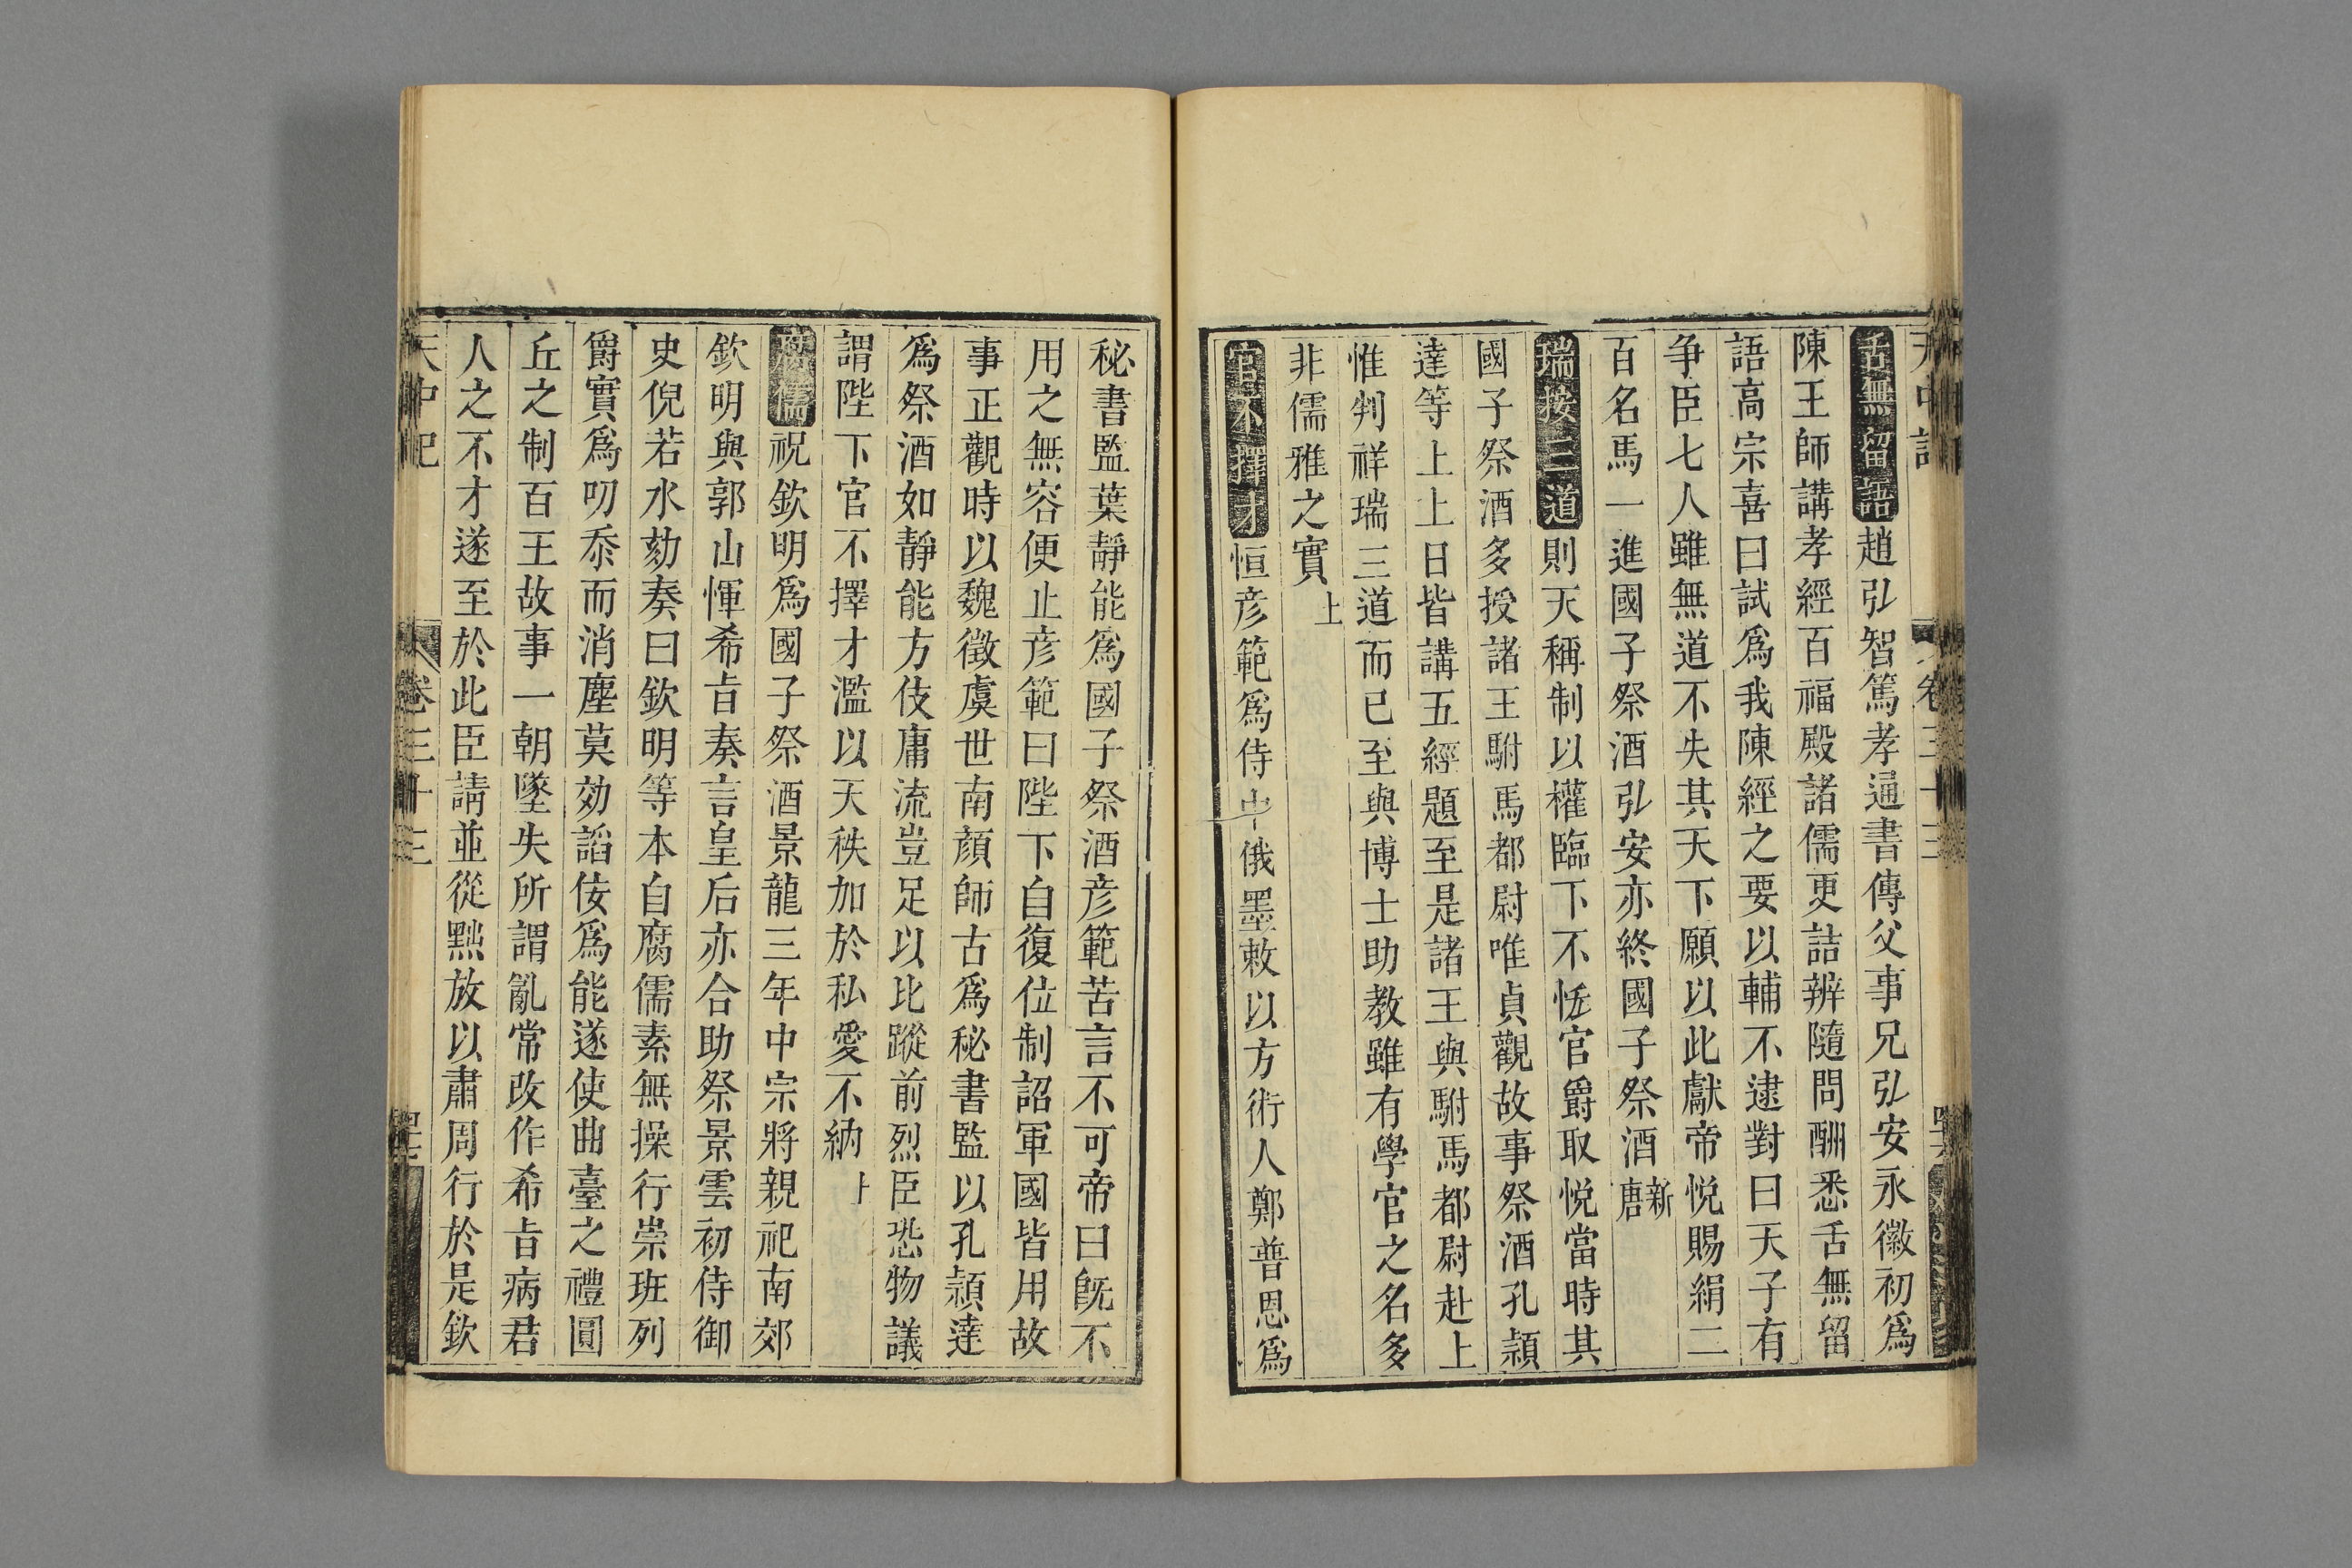 舌無留語趙弘智篤孝通書傳父事兄弘安永徽初爲
陳王師講孝經百福殿諸儒更詰辨隨問酬悉舌無留
語高宗喜曰試爲我陳經之要以輔不逮對曰天子有
争臣七人雖無道不失其天下願以此獻帝悅賜絹二
百名馬一進國子祭酒弘安亦終國子祭酒新唐
瑞按三道則天稱制以權臨下不恡官爵取悅當時其
國子祭酒多授諸王駙馬都尉唯貞觀故事祭酒孔頴
達等上上日皆講五經題至是諸王與駙馬都尉赴上
惟判祥瑞三道而已至與博士助教雖有學官之名多
非儒雅之實上
官不擇才恒彦範爲侍中俄墨敕以方術人鄭普思爲
秘書監葉靜能爲國子祭酒彦範苦言不可帝曰旣不
用之無容便止彦範曰陛下自復位制詔軍國皆用故
事正觀時以魏徵虞世南顔師古爲秘書監以孔頴達
爲祭酒如靜能方伎庸流豈足以比蹤前烈臣恐物議
謂陛下官不擇才濫以天秩加於私愛不納上
腐儒祝欽明爲國子祭酒景龍三年中宗將親祀南郊
欽明與郭山惲希旨奏言皇后亦合助祭景雲初侍御
史倪若水劾奏曰欽明等本自腐儒素無操行崇班列
爵實爲叨忝而消塵莫効謟佞爲能遂使曲臺之禮圓
丘之制百王故事一朝墜失所謂亂常改作希旨病君
人之不才遂至於此臣請並從黜放以肅周行於是欽
天中記 卷三十三